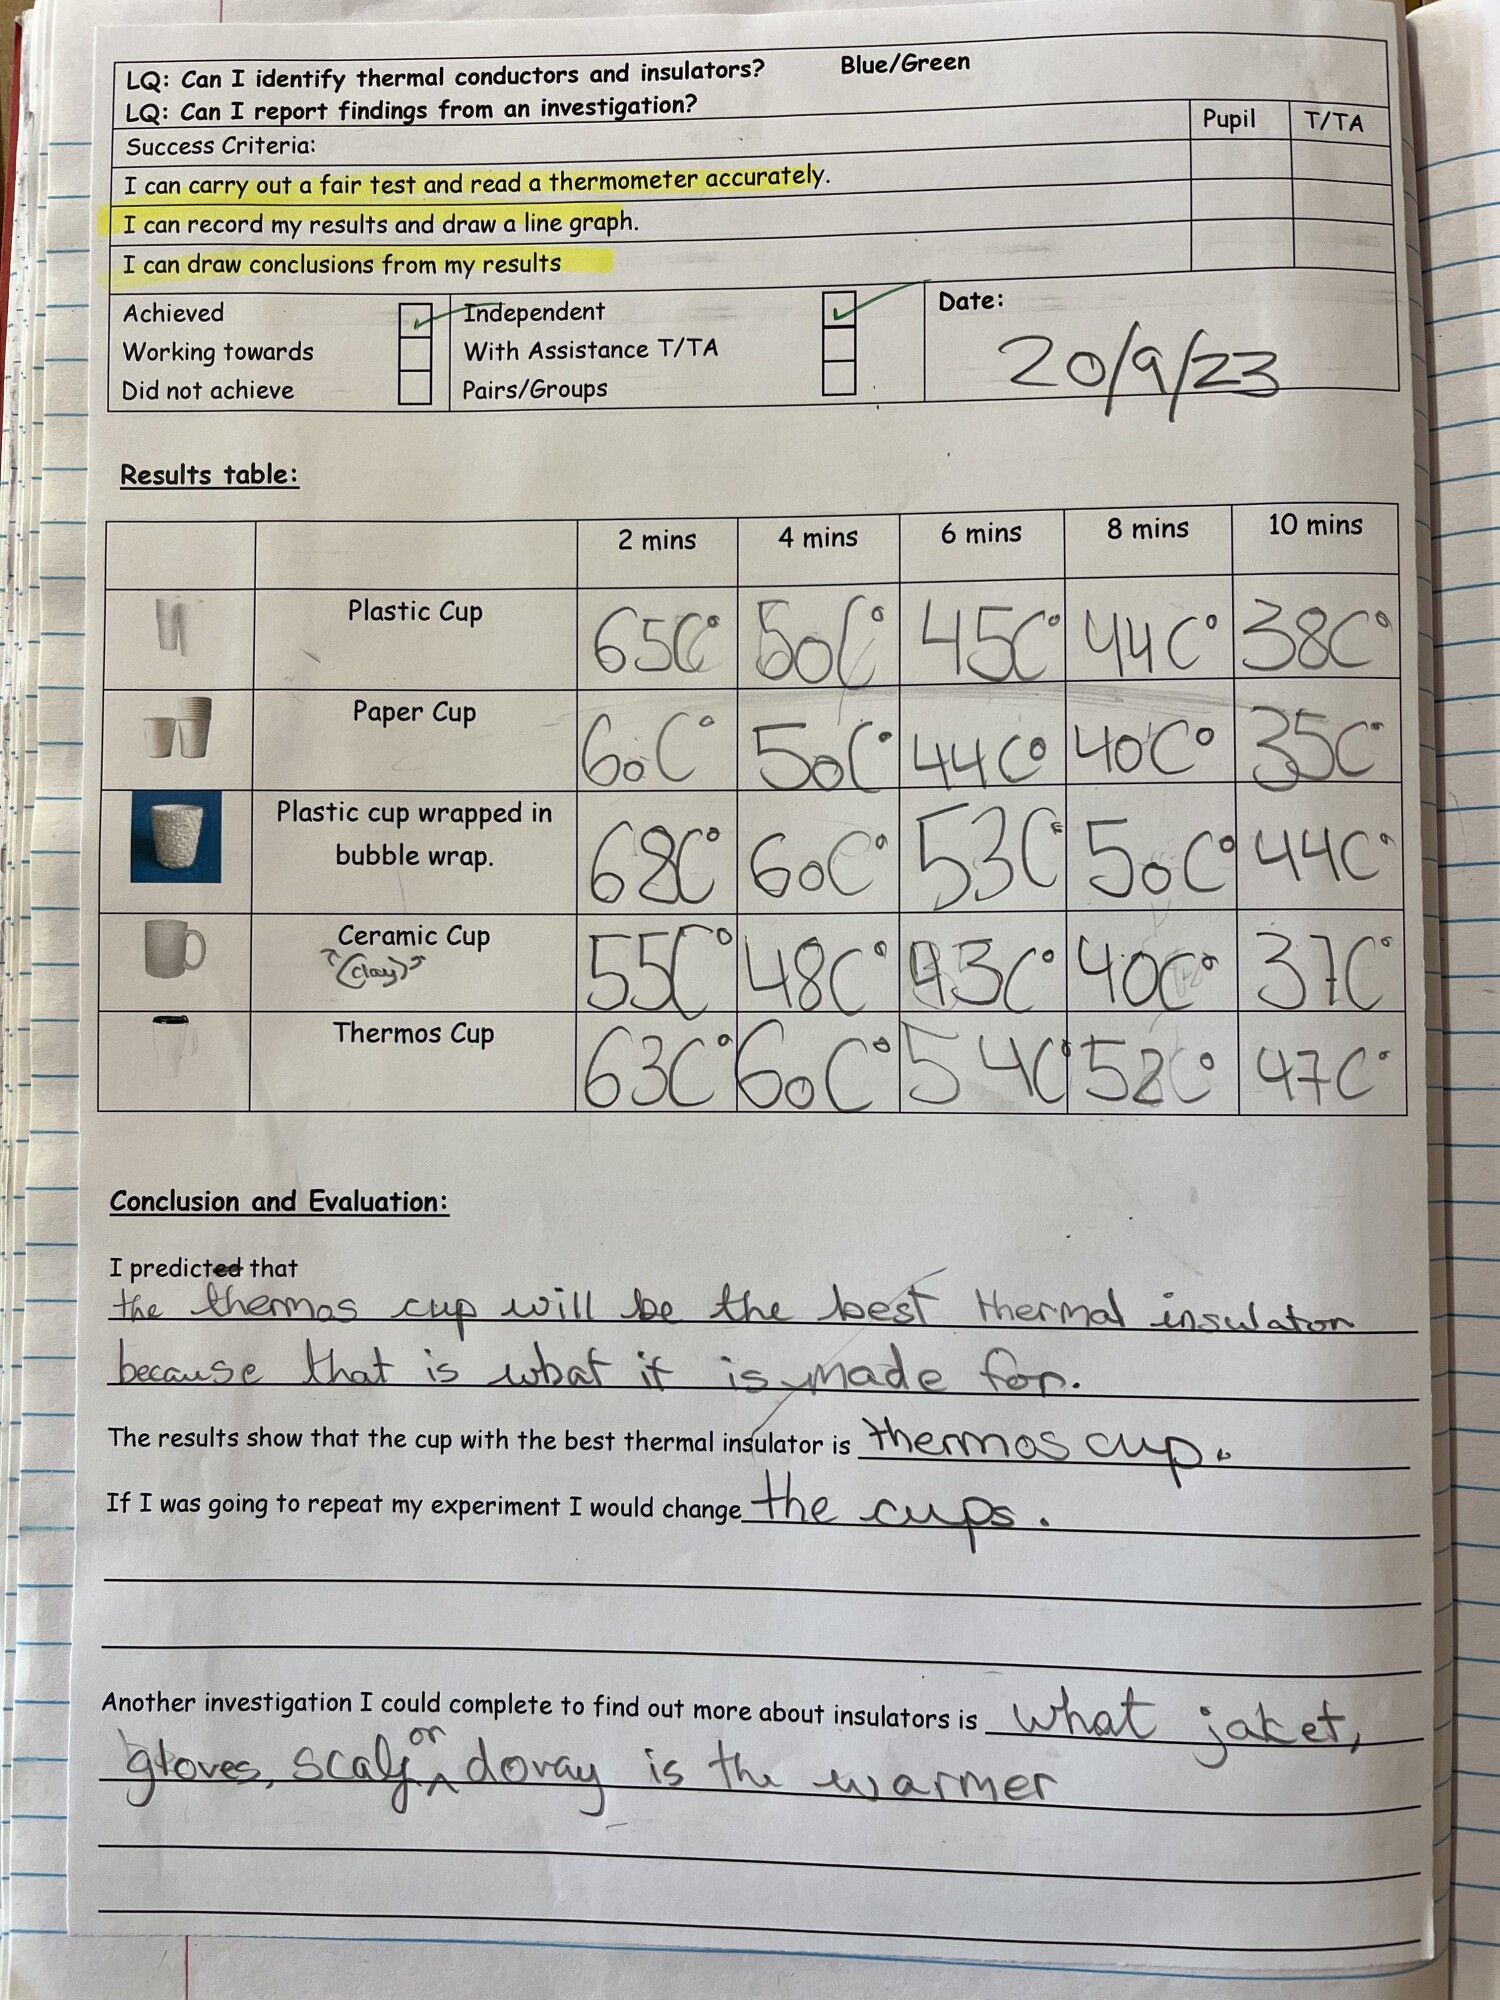 LQ: Can I identify thermal conductors and insulators? Blue/Green
LQ: Can I report findings from an investigation?
Pupil T/TA
Success Criteria:
I can carry out a fair test and read a thermometer accurately.
I can record my results and draw a line graph.
I can draw conclusions from my results
Achieved Independent Date:
Working towards With Assistance T/TA 20/9/23
Did not achieve Pairs/Groups
Results table:
2 mins 4 mins 6 mins 8 mins 10 mins
Plastic Cup 65C° 50C° 45C° 44C° 38C°
Paper Cup 60C° 50C° 44C° 40C° 35C°
Plastic cup wrapped in
bubble wrap. 68C° 60C° 53C° 50C° 44C°
Ceramic Cup 55C° 48C° 43C° 40C° 37C°
(clay)
Thermos Cup 63C° 60C° 54C° 52C° 47C°
Conclusion and Evaluation:
I predicted that
the thermos cup will be the best thermal insulator
because that is what it is made for.
The results show that the cup with the best thermal insulator is thermos cup.
If I was going to repeat my experiment I would change the cups.
Another investigation I could complete to find out more about insulators is what jaket,
gloves, scalf or dovay is the warmer